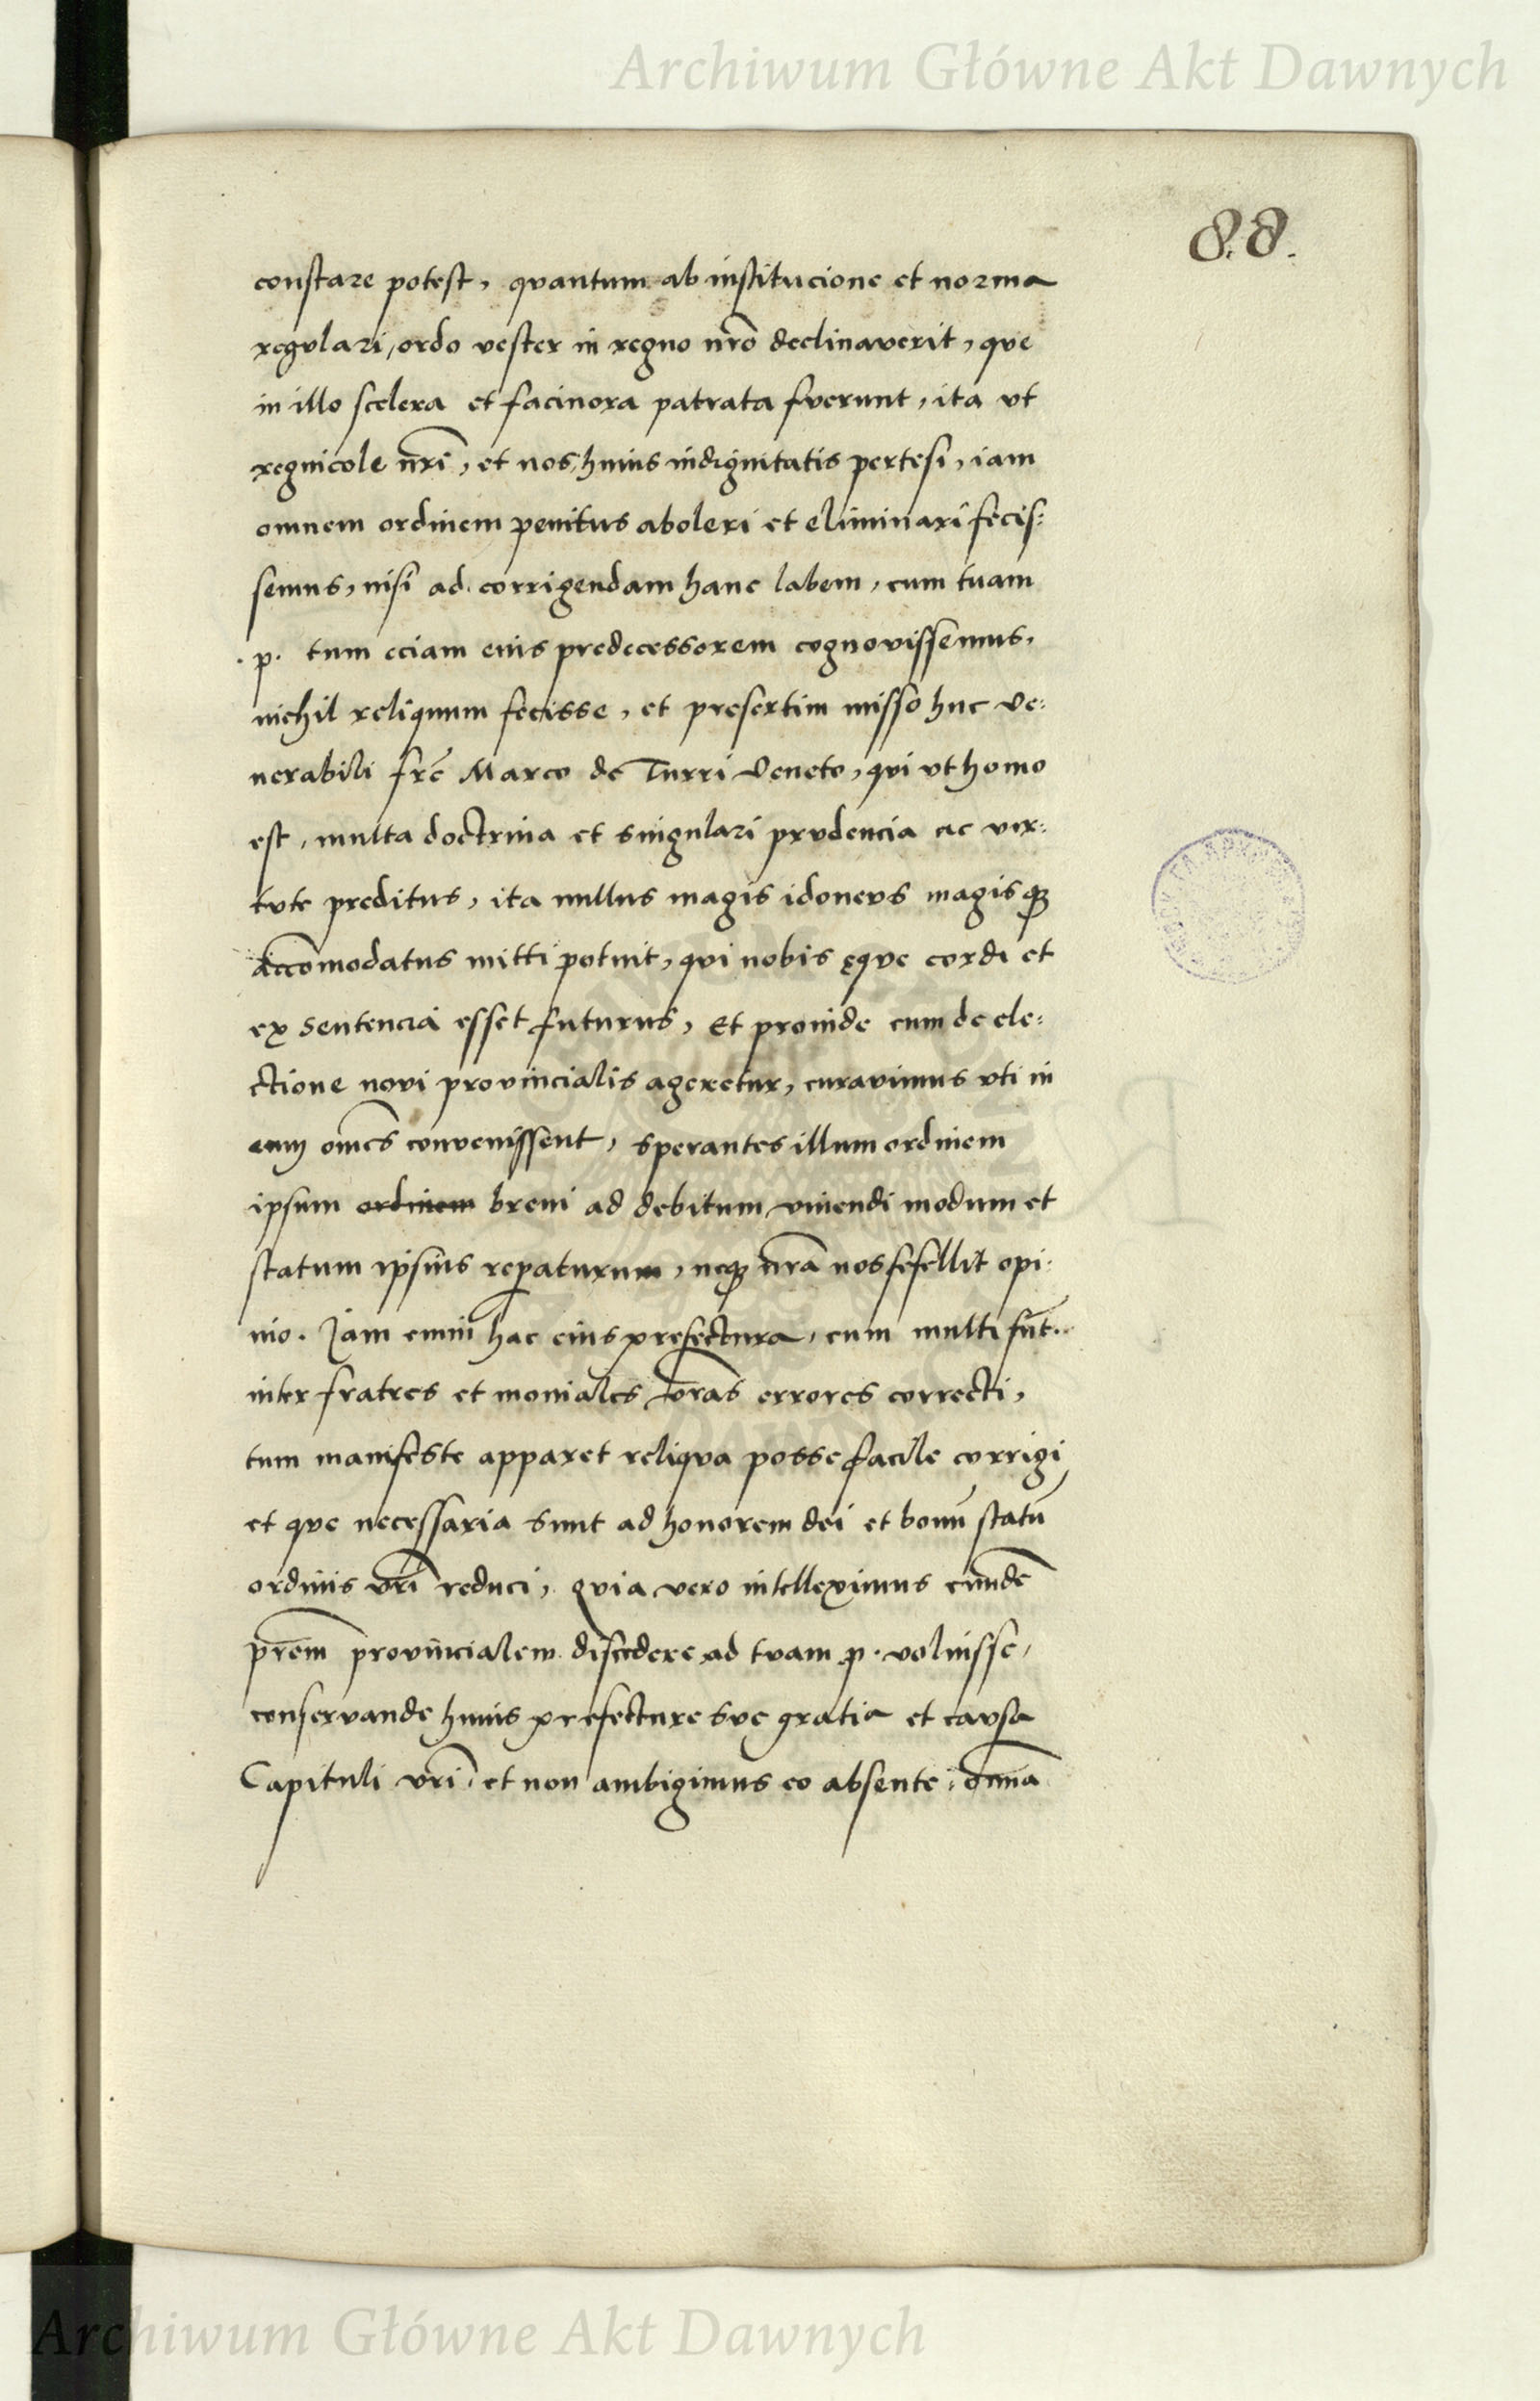 Archiwum Główne Akt Dawnych
88.
constare potest, quantum ab institucione et norma
regulari, ordo vester in regno nr̃o declinaverit, que
in illo scelera et facinora patrata fverunt, ita vt
regnicole nr̃i, et nos huius indignitatis pertesi, iam
omnem ordinem penitus aboleri et eliminari fecis:
semus, nisi ad corrigendam hanc labem, cum tuam
.p. tum eciam eius predecessorem cognovissemus,
nichil reliquum fecisse, et presertim misso huc ve:
nerabili fr̃e Marco de Turri Veneto, qui vt homo
est, multa doctrina et singulari prvdencia ac vir:
tvte preditus, ita nullus magis idonevs magisq
Accõmodatus mitti potuit, qvi nobis ęque cordi et
ex sentencia esset futurus, Et proinde cum de ele:
ctione novi provincialis ageretur, curavimus vti in
eum om̃es convenissent, sperantes illum ordinem
ipsum ordinem brevi ad debitum vivendi modum et
statum ipsius reparaturum, neq nr̃a nos fefellit opi:
nio. Iam enim hac eius prefectura, cum multi sũt
inter fratres et moniales vr̃as errores correcti,
tum manifeste apparet reliqva posse facile corrigi
et que necessaria sunt ad honorem dei et bonũ statũ
ordinis vr̃i reduci, qvia vero intelleximus eundẽ
pr̃em provincialem discedere ad tvam p. voluisse,
conservande huius prefecture sve gratia et cavsa
Capituli vr̃i, et non ambigimus eo absente, om̃ia
Archiwum Główne Akt Dawnych